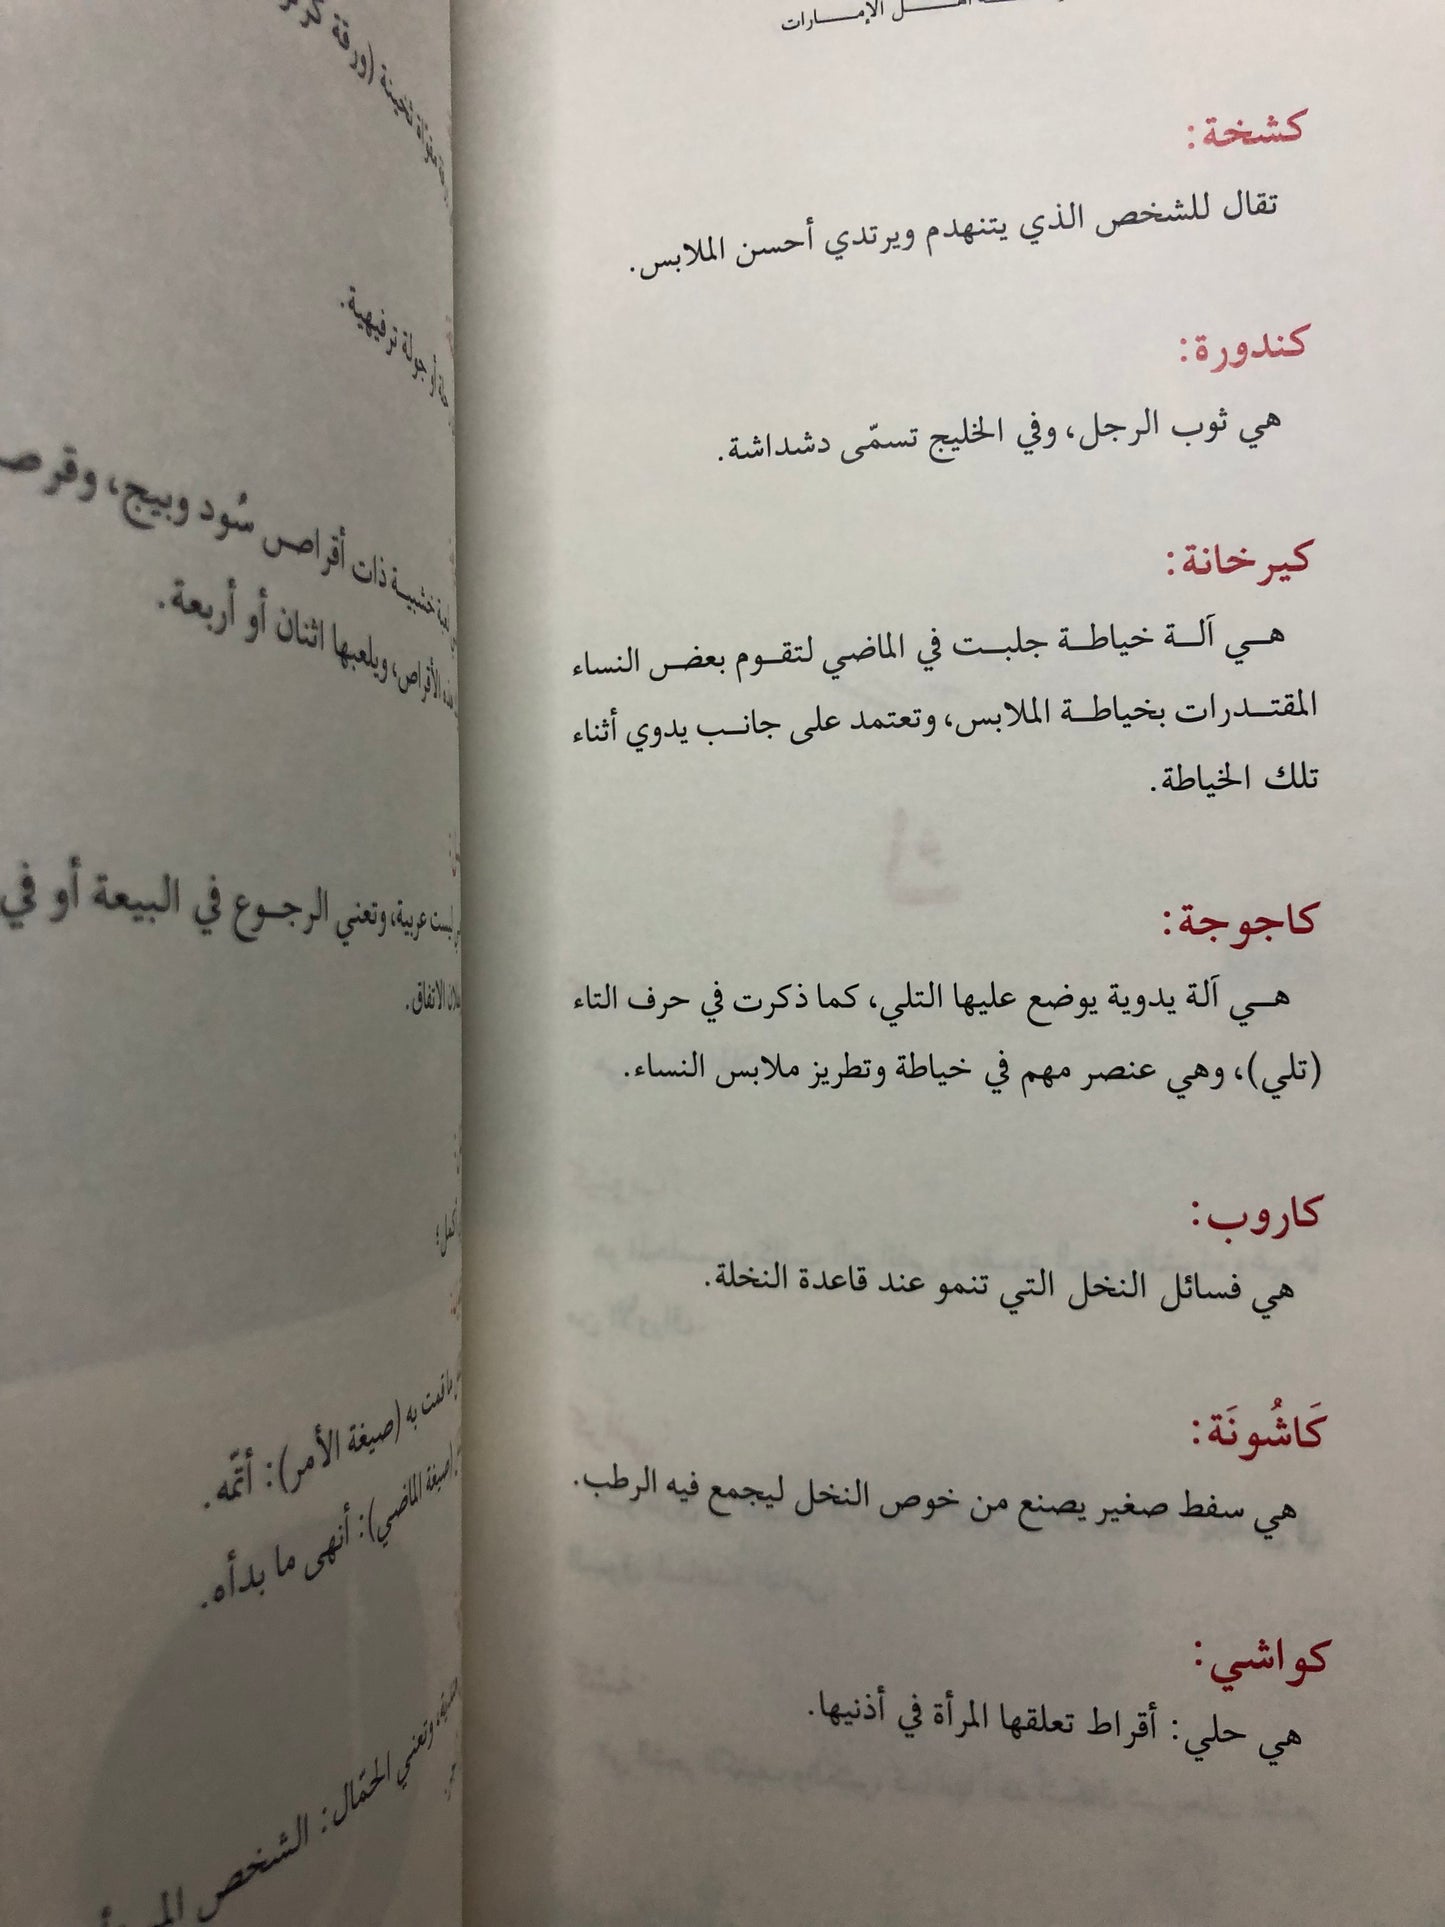 الإمـــارات
كشخة:
تقال للشخص الذي يتنهدم ويرتدي أحسن الملابس.
كندورة:
هي ثوب الرجل، وفي الخليج تسمّى دشداشة.
كيرخانة:
هـي آلـة خياطـة جلبـت في الماضي لتقـوم بعض النساء
المقتـدرات بخياطـة الملابس، وتعتمد على جانـب يدوي أثناء
تلك الخياطة.
كاجوجة:
هـي آلة يدوية يوضع عليها التلي، كما ذكرت في حرف التاء
(تلي)، وهي عنصر مهم في خياطة وتطريز ملابس النساء.
كاروب:
هي فسائل النخل التي تنمو عند قاعدة النخلة.
كَاشُونَة:
هي سفط صغير يصنع من خوص النخل ليجمع فيه الرطب.
كواشي:
هي حلي: أقراط تعلقها المرأة في أذنيها.
ثخينة (ورقة
أو جولة ترفيهية.
خشبيـة ذات أقراص سُود وبيج، وقرص
الأقراص، ويلعبها اثنان أو أربعة.
ليست عربية، وتعني الرجـوع في البيعة أو في
الاتفاق.
أكمل؛
ما قمت به (صيغة الأمر): أتمّه.
(صيغة الماضي): أنهى ما بدأه.
وتعني الحمّال: الشخص